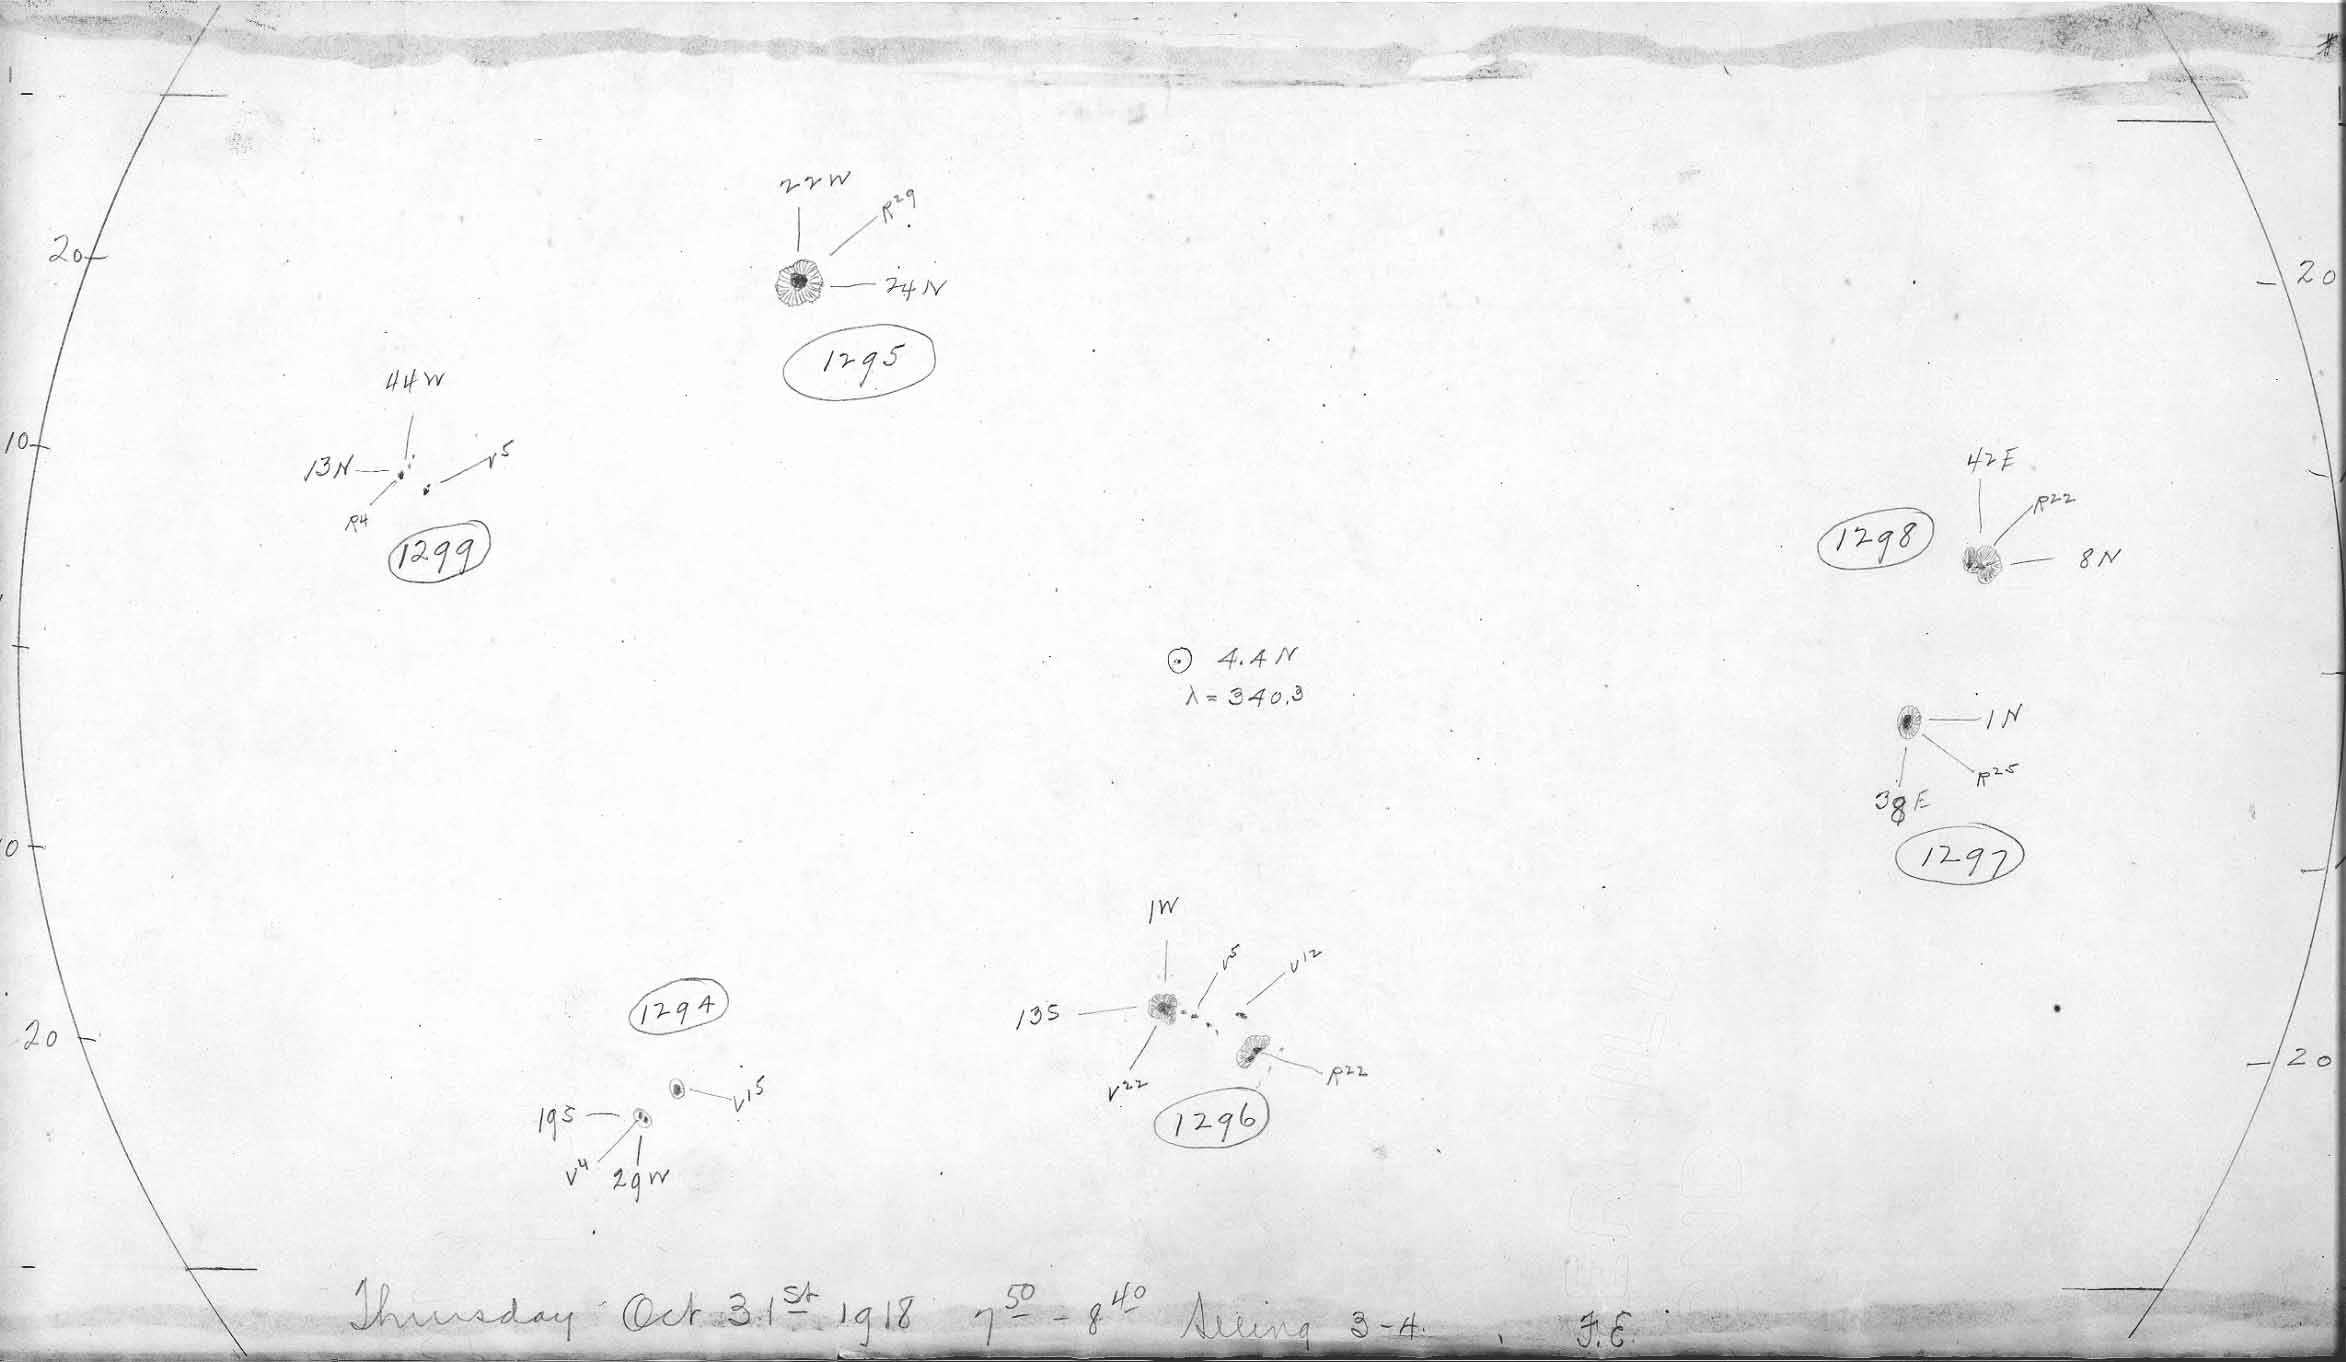 22W
R29
20
24N
20
1295
44W
10
13N
V5
R4
1299
42E
R22
1298
8N
4.4N
λ = 340.3
1N
R25
38E
0
1297
1W
V5
V12
1294
13S
20
20
V22
R22
V15
19S
1296
V4
29W
Thursday Oct 31st 1918 7 50 - 8 40 Seeing 3-4. F.E.